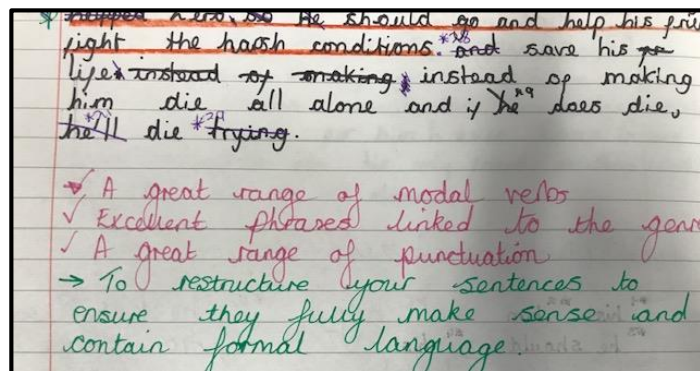 hero, so He should go and help his
fight the harsh conditions. and save his
life instead of making instead of making
him die all alone and if he does die,
he'll die trying.
✓ A great range of modal verbs
✓ Excellent phrases linked to the genr
✓ A great range of punctuation
→ To restructure your sentences to
ensure they fully make sense and
contain formal language.